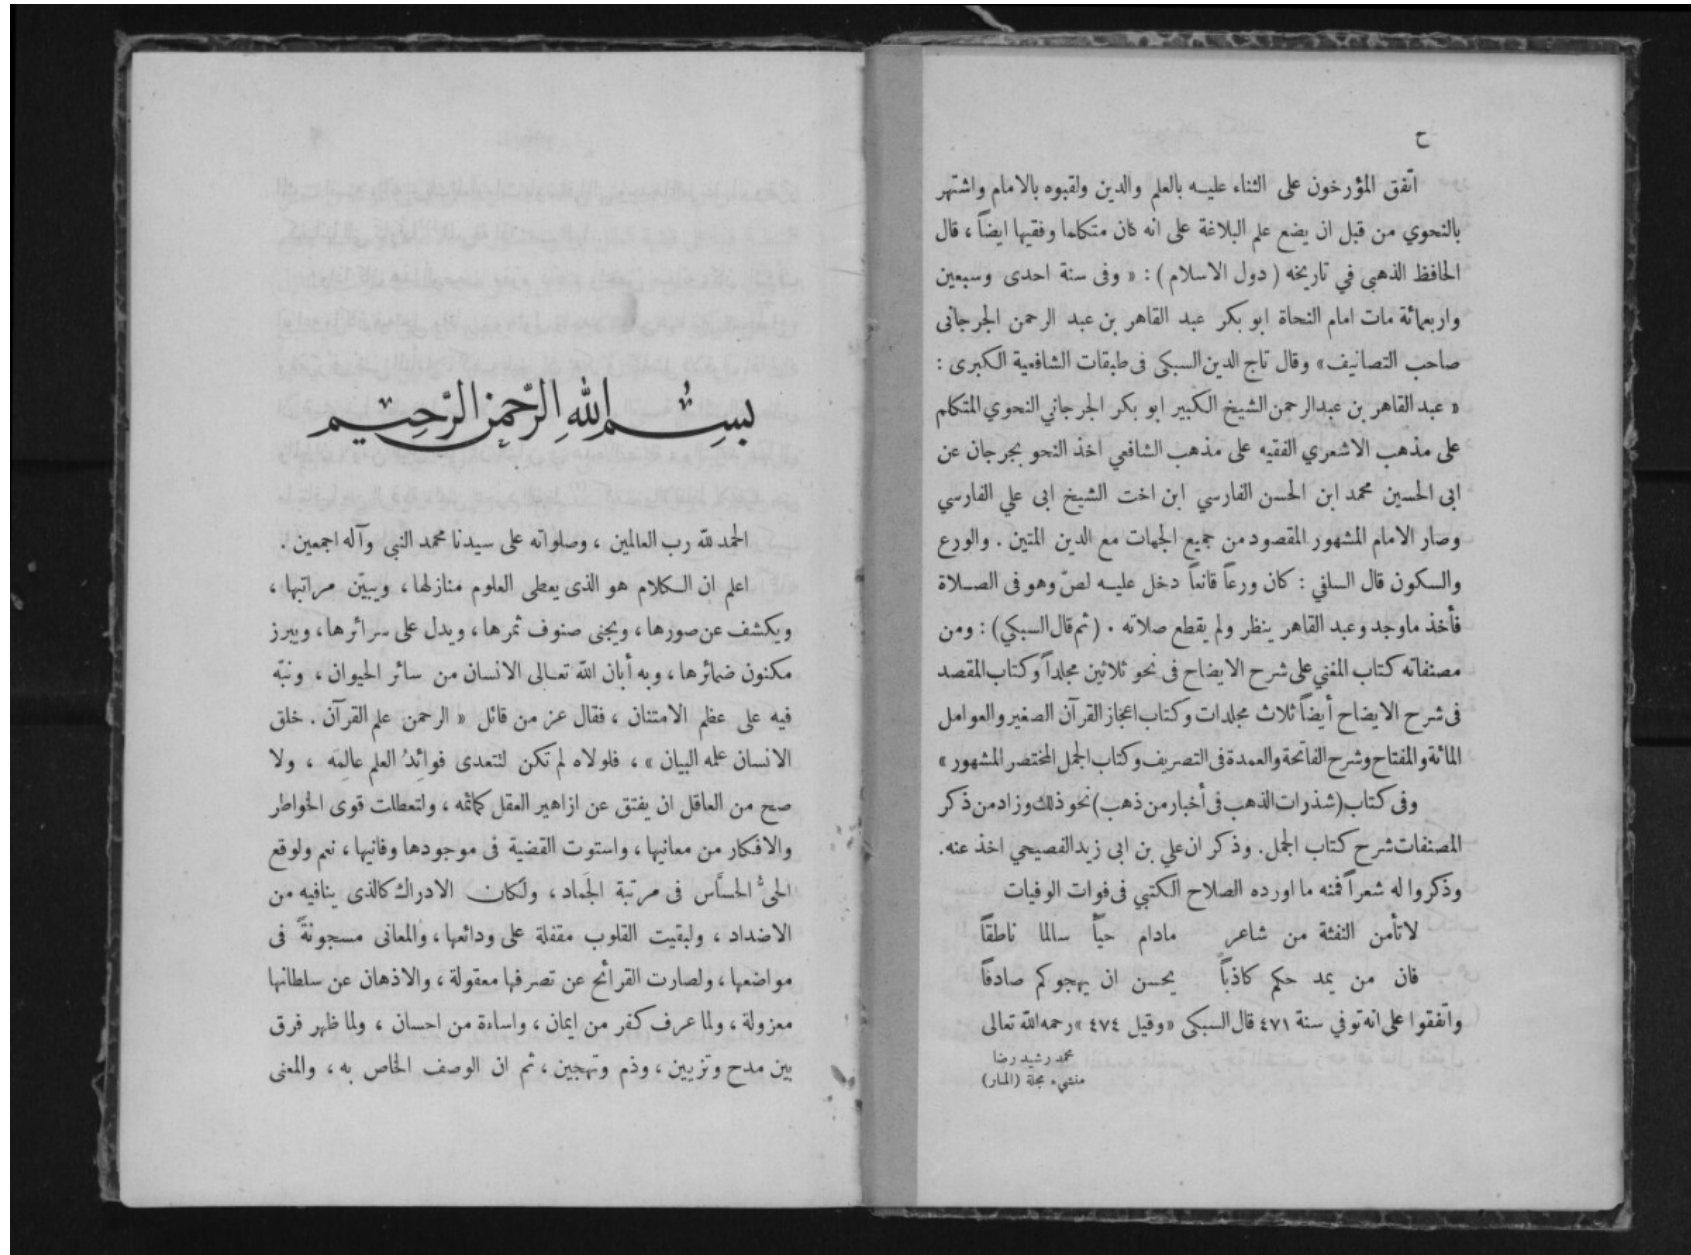 ح
اتّفق المؤرخون على الثناء عليه بالعلم والدين ولقبوه بالامام واشتهر
بالنحوي من قبل ان يضع علم البلاغة على انه كان متكلما وفقيها ايضاً ، قال
الحافظ الذهبى في تاريخه ( دول الاسلام ) : « وفى سنة احدى وسبعين
واربعمائة مات امام النحاة ابو بكر عبد القاهر بن عبد الرحمن الجرجانى
صاحب التصانيف» وقال تاج الدين السبكى فى طبقات الشافعية الكبرى :
« عبد القاهر بن عبدالرحمن الشيخ الكبير ابو بكر الجرجاني النحوي المتكلم
على مذهب الاشعري الفقيه على مذهب الشافعي اخذ النحو بجرجان عن
ابى الحسين محمد ابن الحسن الفارسي ابن اخت الشيخ ابى علي الفارسي
وصار الامام المشهور المقصود من جميع الجهات مع الدين المتين . والورع
والسكون قال السلفي : كان ورعاً قانعاً دخل عليه لصّ وهو فى الصلاة
فأخذ ماوجد وعبد القاهر ينظر ولم يقطع صلاته . (ثم قال السبكي) : ومن
مصنفاته كتاب المغني على شرح الايضاح فى نحو ثلاثين مجلداً وكتاب المقصد
فى شرح الايضاح أيضاً ثلاث مجلدات وكتاب اعجاز القرآن الصغير والعوامل
المائة والمفتاح وشرح الفاتحة والعمدة فى التصريف وكتاب الجمل المختصر المشهور »
وفى كتاب (شذرات الذهب فى أخبار من ذهب) نحو ذلك وزاد من ذكر
المصنفات شرح كتاب الجمل. وذكر ان علي بن ابى زيد الفصيحي اخذ عنه.
وذكروا له شعراً فمنه ما اورده الصلاح الكتبي فى فوات الوفيات
لاتأمن النفثة من شاعر مادام حيّاً سالما ناطقاً
فان من يمد حكم كاذباً يحسن ان يهجوكم صادقاً
واتفقوا على انه توفي سنة ٤٧١ قال السبكى «وقيل ٤٧٤ » رحمه الله تعالى
محمد رشيد رضا
منشىء مجلة (المنار)
بسم الله الرّحمن الرّحيم
الحمد لله رب العالمين ، وصلواته على سيدنا محمد النبي وآله اجمعين .
اعلم ان الكلام هو الذى يعطى العلوم منازلها ، ويبيّن مراتبها ،
ويكشف عن صورها ، ويجنى صنوف ثمرها ، ويدل على سرائرها ، ويبرز
مكنون ضمائرها ، وبه أبان الله تعالى الانسان من سائر الحيوان ، ونبّه
فيه على عظم الامتنان ، فقال عز من قائل « الرحمن علم القرآن . خلق
الانسان علمه البيان » ، فلولاه لم تكن لتتعدى فوائدُ العلم عالِمَه ، ولا
صح من العاقل ان يفتق عن ازاهير العقل كمائمه ، ولتعطلت قوى الخواطر
والافكار من معانيها ، واستوت القضية فى موجودها وفانيها ، نعم ولوقع
الحىُّ الحسَّاس فى مرتبة الجَماد ، ولكان الادراك كالذى ينافيه من
الاضداد ، ولبقيت القلوب مقفلة على ودائعها ، والمعانى مسجونةً فى
مواضعها ، ولصارت القرائح عن تصرفها معقولة ، والاذهان عن سلطانها
معزولة ، ولما عرف كفر من ايمان ، واساءة من احسان ، ولما ظهر فرق
بين مدح وتزيين ، وذم وتهجين ، ثم ان الوصف الخاص به ، والمعنى